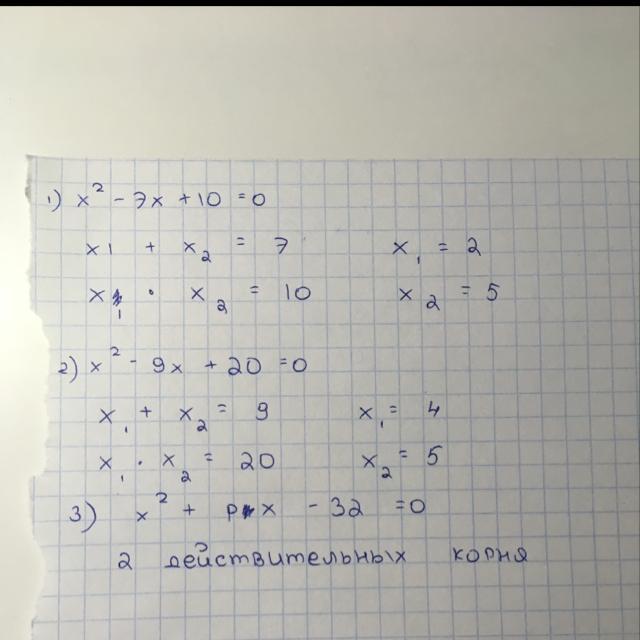 1) x² - 7x + 10 = 0
x1 + x₂ = 7 x₁ = 2
x₁ · x₂ = 10 x₂ = 5
2) x² - 9x + 20 = 0
x₁ + x₂ = 9 x₁ = 4
x₁ · x₂ = 20 x₂ = 5
3) x² + px - 32 = 0
2 действительных корня